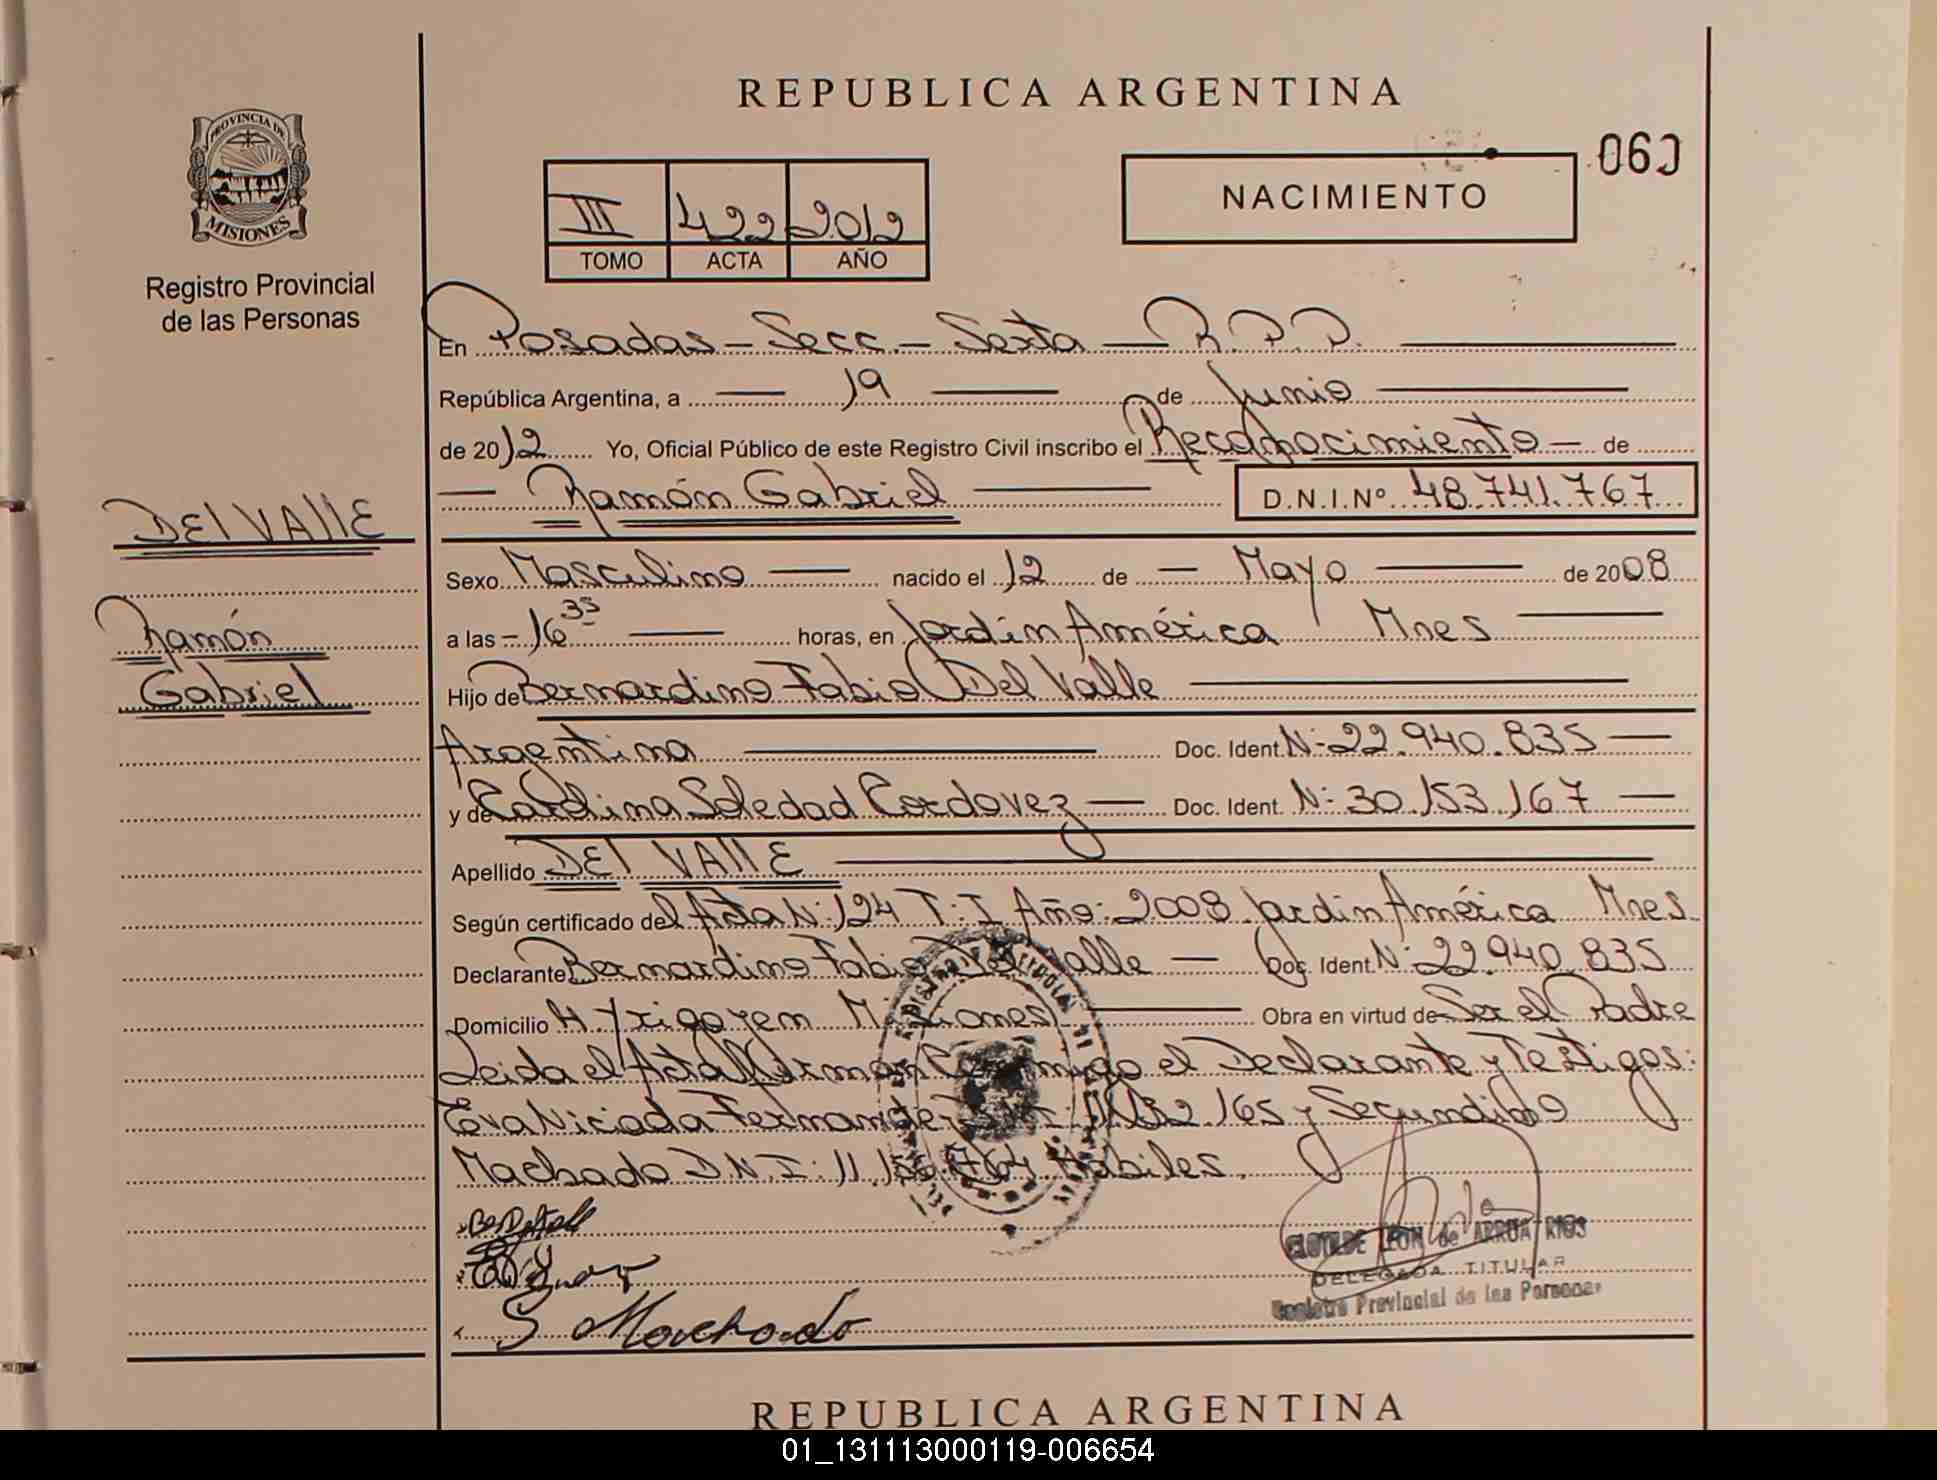 REPUBLICA ARGENTINA
PROVINCIA DE
MISIONES
Registro Provincial
de las Personas
III 422 2012
TOMO ACTA AÑO
NACIMIENTO
060
En Posadas - Secc. - Sexta - R.P.P.
República Argentina, a 19 de Junio
de 2012 Yo, Oficial Público de este Registro Civil inscribo el Reconocimiento - de
Ramón Gabriel D.N.I.Nº 48.741.767
DEl VAllE
Ramón
Gabriel
Sexo Masculino nacido el 12 de Mayo de 2008
a las - 16 35 horas, en Jardín América Mnes
Hijo de Bernardino Fabio Del Valle
Argentina Doc. Ident. N: 22.940.835
y de Carolina Soledad Cordovez Doc. Ident. N: 30.153.167
Apellido DEl VAllE
Según certificado del Acta N: 124 T: I Año: 2008 Jardín América Mnes
Declarante Bernardino Fabio Del Valle Doc. Ident. N: 22.940.835
Domicilio H. Yrigoyen Misiones Obra en virtud de Ser el Padre
Leida el Acta Firman Conmigo el Declarante y Testigos:
Eva Fernandez y Segundino
Machado D.N.I: 11. 764 Hábiles.
S Machado
CLOTILDE LEON de ARRUA RIOS
DELEGADA TITULAR
Registro Provincial de las Personas
REPUBLICA ARGENTINA
01_131113000119-006654